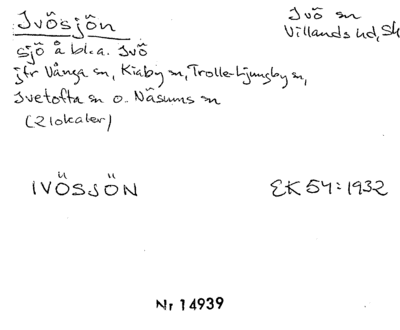 Ivösjön
Ivö sn
Villands hd, Sk
sjö å bl.a. Ivö
jfr Vånga sn, Kiaby sn, Trolle-Ljungby sn,
Ivetofta sn o. Näsums sn
(2 lokaler)
IVÖSJÖN
EK 54:1932
Nr 14939